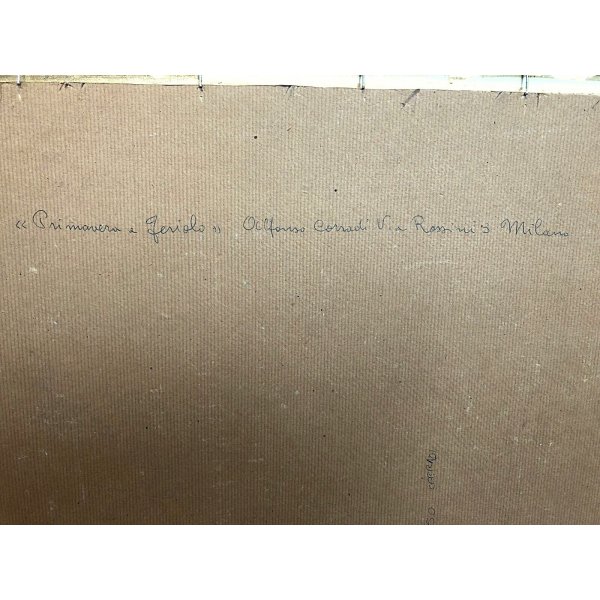 « Primavera a Feriolo » Alfonso Corradi Via Rossini 3 Milano
SO CORRADI